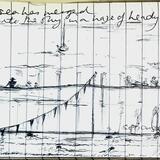 sea has merged
into the sky in a haze of heady